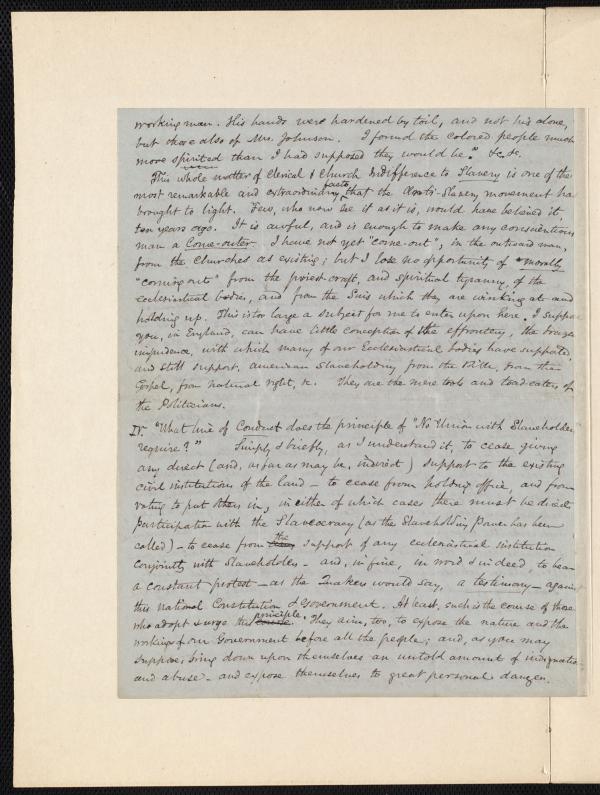 working man. His hands were hardened by toil, and not his alone,
but those also of Mrs. Johnson. I found the colored people much
more spirited than I had supposed they would be." &c. &c.
This whole matter of Clerical & Church Indifference to Slavery is one of the
most remarkable and extraordinary facts, that the Anti-Slavery movement ha
brought to light. Few, who now see it as it is, would have believed it,
ten years ago. It is awful, and is enough to make any conscientious
man a Come-outer. I have not yet "come-out", in the outward man,
from the Churches as existing; but I lose no opportunity of morally
"coming out" from the priest-craft, and spiritual tyranny, of the
ecclesiastical bodies, and from the Sins which they are winking at and
holding up. This is too large a subject for me to enter upon here. I suppose
you, in England, can have little conception of the effrontery, the brazen
impudence, with which many of our Ecclesiastical bodies have supported
and still support, American Slaveholding, from the Bible, from the
Gospel, from natural right, &c. They are the mere tools and toad-eaters of
the Politicians.
IV. "What line of Conduct does the principle of "No Union with Slaveholders
require?" Simply & briefly, as I understand it, to cease giving
any direct (and, as far as may be, indirect) support to the existing
civil institutions of the land – to cease from holding office, and from
voting to put others in, in either of which cases there must be direct
participation with the Slaveocracy (as the Slaveholding Power has been
called) – to cease from the support of any ecclesiastical institution
conjointly with Slaveholders – and, in fine, in word & indeed, to bear
a constant protest – as the Quakers would say, a testimony – against
this national Constitution & Government. At least, such is the course of those
who adopt & urge this principle. They aim, too, to expose the nature and the
workings of our Government before all the people; and, as you may
suppose, bring down upon themselves an untold amount of indignation
and abuse – and expose themselves to great personal danger.